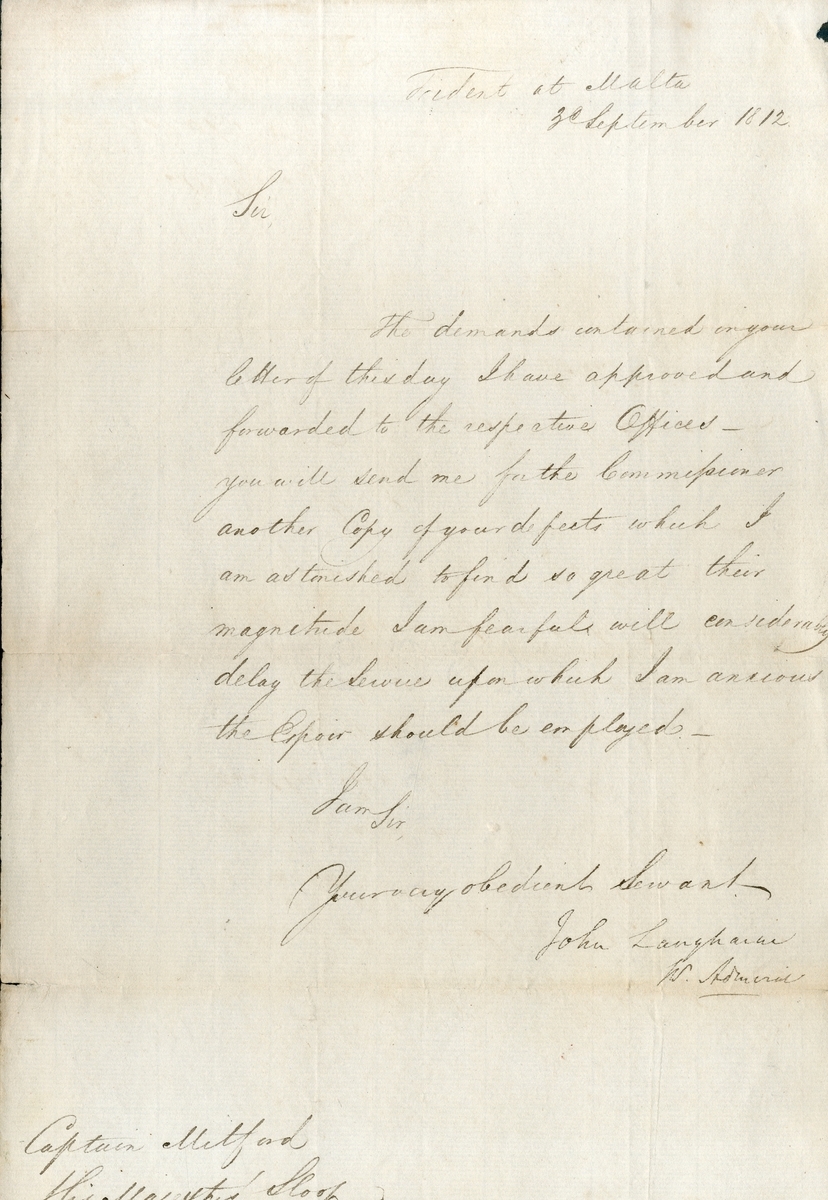 Trident at Malta
3d September 1812.
Sir,
The demands contained in your
letter of this day I have approved and
forwarded to the respective Offices —
you will send me for the Commissioner
another Copy of your defects which I
am astonished to find so great their
magnitude I am fearful will considerably
delay the Service upon which I am anxious
the Espoir should be employed. —
I am
Sir,
Your very obedient Servant
John Laugharne
Admiral
Captain Mitford
His Majesty's Sloop